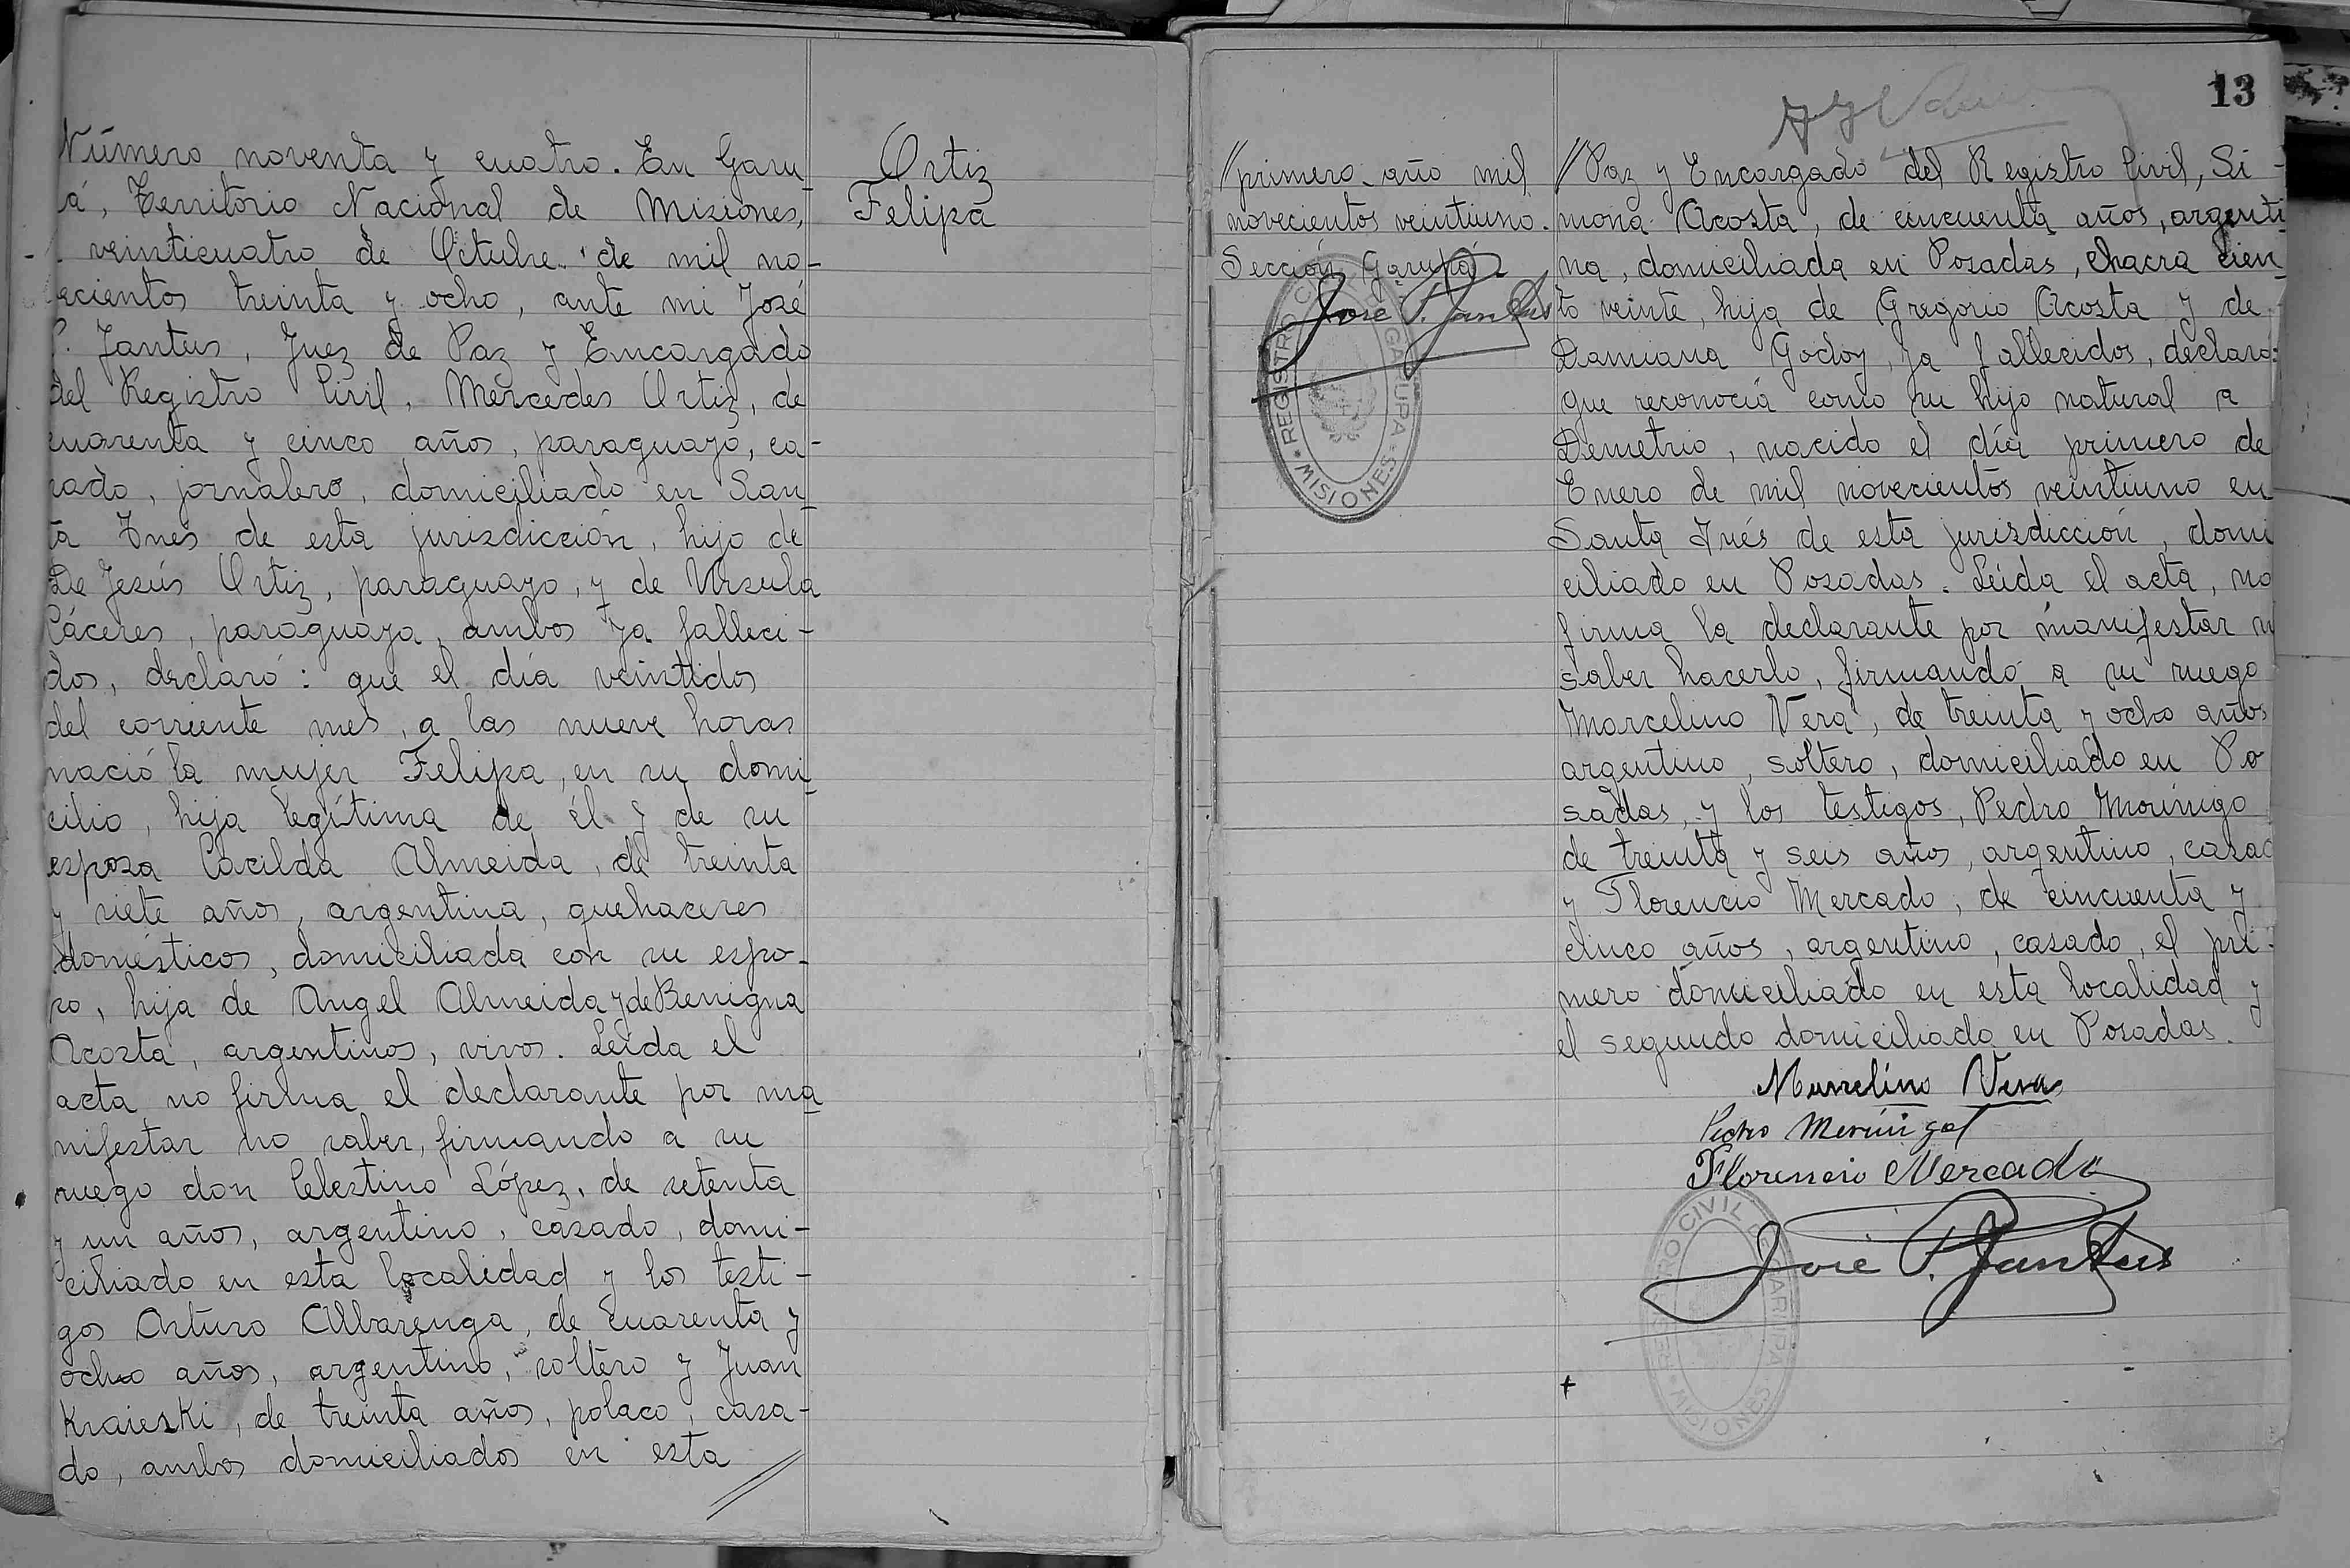 Número noventa y cuatro. En Garu-
á, Territorio Nacional de Misiones,
veinticuatro de Octubre de mil no-
ecientos treinta y ocho, ante mi José
P. Jantus, Juez de Paz y Encargado
del Registro Civil, Mercedes Ortiz, de
cuarenta y cinco años, paraguayo, ca-
sado, jornalero, domiciliado en San-
ta Inés de esta jurisdicción, hijo de
De Jesús Ortiz, paraguayo, y de Ursula
Cáceres, paraguaya, ambos ya falleci-
dos, declaró: que el día veintidos
del corriente mes, a las nueve horas
nació la mujer Felipa, en su domi-
cilio, hija legítima de él y de su
esposa Cacilda Almeida, de treinta
y siete años, argentina, quehaceres
domésticos, domiciliada con su espo-
so, hija de Angel Almeida y de Benigna
Acosta, argentinos, vivos. Leída el
acta no firma el declarante por ma-
nifestar no saber, firmando a su
ruego don Celestino López, de setenta
y un años, argentino, casado, domi-
ciliado en esta localidad y los testi-
gos Arturo Albarenga, de cuarenta y
ocho años, argentino, soltero y Juan
Kraieski, de treinta años, polaco, casa-
do, ambos domiciliados en esta //
Ortiz
Felipa
//primero año mil
novecientos veintiuno.
Sección Garupá
José P. Jantus
REGISTRO CIVIL DE GARUPA
MISIONES
13
//Paz y Encargado del Registro Civil, Si-
mona Acosta, de cincuenta años, argenti-
na, domiciliada en Posadas, chacra cien-
to veinte, hija de Gregorio Acosta y de
Damiana Godoy, ya fallecidos, declaró:
que reconocía como su hijo natural a
Demetrio, nacido el día primero de
Enero de mil novecientos veintiuno en
Santa Inés de esta jurisdicción, domi
ciliado en Posadas. Leída el acta, no
firma la declarante por manifestar n
saber hacerlo, firmando a su ruego
Marcelino Vera, de treinta y ocho años
argentino, soltero, domiciliado en Po
sadas, y los testigos, Pedro Morinigo
de treinta y seis años, argentino, casad
y Florencio Mercado, de cincuenta y
cinco años, argentino, casado, el pri-
mero domiciliado en esta localidad y
el segundo domiciliado en Posadas.
Marcelino Vera
Pedro Merinigo
Florencio Mercado
José P. Jantus
REGISTRO CIVIL DE GARUPA
MISIONES